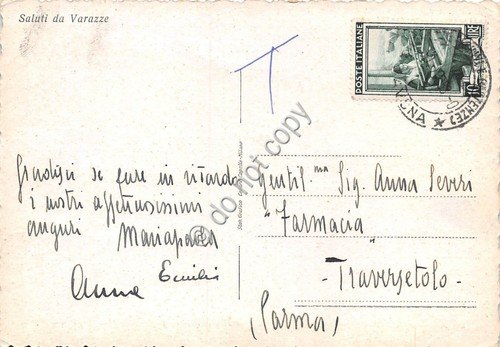 Saluti da Varazze
T
POSTE ITALIANE
LIRE 10
Gradisci se pure in ritardo
i nostri affettuosissimi
auguri Mariapaola
Emilio
Anna
Gentil.ma Sig. Anna Severi
"Farmacia"
- Traversetolo -
(Parma)
do not copy